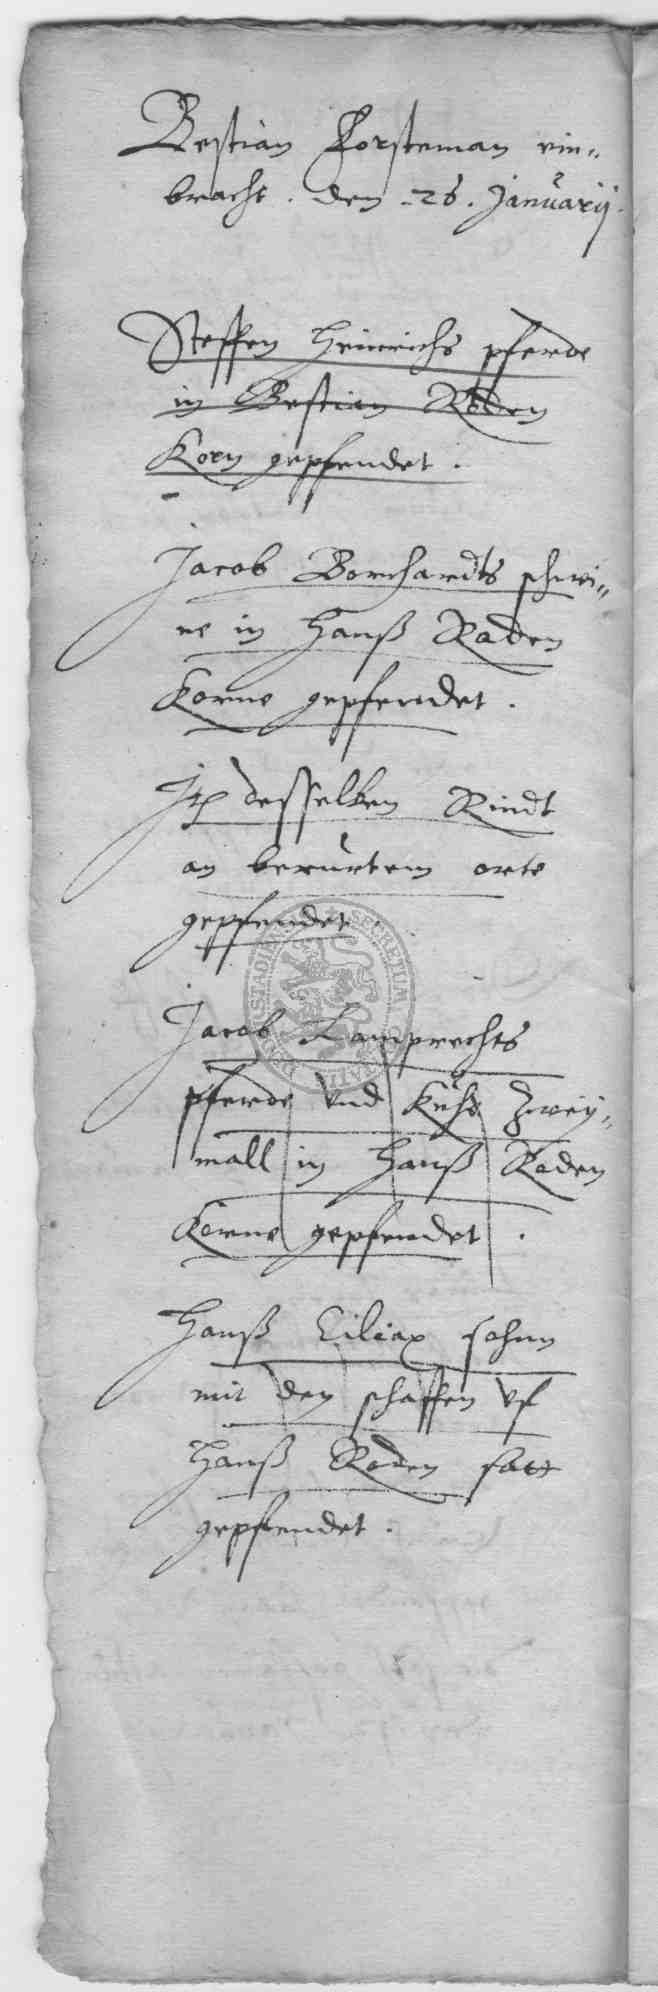 Bestian Forsteman ein„
bracht . den .26. Januarij.
Steffen Heinrichs pferde
in Bestian Roden
Korn gepfendet .
Jacob Borchardts schwei„
ne in Hanß Roden
Korne gepfendet .
desselben Rindt
an berurtem orte
gepfendet .
Jacob Lamprechts
pferde vnd Kuhe Zwey„
mall in Hanß Roden
Korne gepfendet .
Hanß Ciliax sohnn
mit den schaffen vf
Hanß Roden satt
gepfendet .
SECRETUM